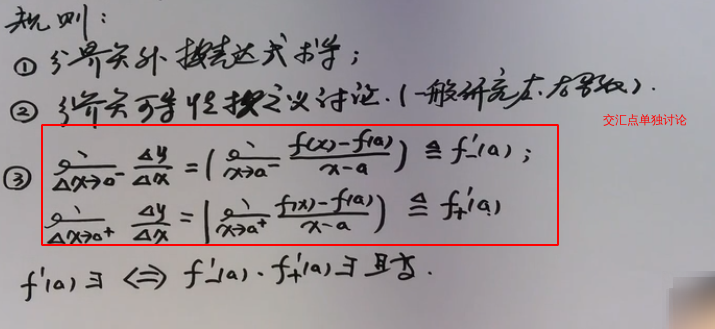 规则:
① 分界点外按表达式求导;
② 分界点可导性按定义讨论.(一般研究左、右导数).
交汇点单独讨论
③ lim Δx→0⁻ Δy/Δx = ( lim x→a⁻ (f(x)-f(a))/(x-a) ) ≜ f₋'(a);
lim Δx→0⁺ Δy/Δx = ( lim x→a⁺ (f(x)-f(a))/(x-a) ) ≜ f₊'(a)
f'(a)∃ ⟺ f₋'(a)、f₊'(a)∃且等.